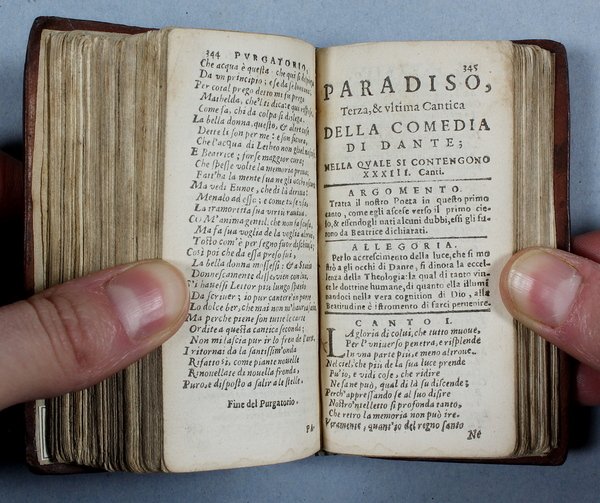 344 PVRGATORIO,
Che acqua è questa: che qui si
Da vn principio; e se da se
Per cotal prego detto mi fu prega
Mathelda, che'l ti dica: e qui rispose,
Come fa, chi da colpa si dislega,
La bella donna, questo, & altre cose
Dette li son per me: e son sicura,
Che l'acqua di Letheo non gliel
E Beatrice; forse maggior cura;
Che spesse volte la memoria priua,
Fatt'ha la mente sua ne gli occhi
Ma vedi Eunoe, che di là deriua:
Menalo ad esso; e come tu se'
La tramortita sua virtu rauiua.
Com'anima gentil, che non fa scusa,
Ma fa sua voglia de la voglia altrui,
Tosto com'è per segno fuor dischiusa;
Così poi che da essa preso fui,
La bella donna mossesi: & a Statio
Donnescamente disse, vien con lui.
S'i hauessi Lettor più lungo spatio
Da scriuer; io pur cantere'in parte
Lo dolce ber, che mai non m'hauria
Ma perche piene son tutte le carte
Ordite a questa cantica seconda;
Non mi lascia pur ir lo fren de l'arte.
I ritornai da la santissim'onda
Rifatto sì, come piante nouelle
Rinouellate di nouella fronda,
Puro, e disposto a salir a le stelle.
Fine del Purgatorio.
345
PARADISO,
Terza, & vltima Cantica
DELLA COMEDIA
DI DANTE;
NELLA QVALE SI CONTENGONO
XXXIII. Canti.
ARGOMENTO.
Tratta il nostro Poeta in questo primo
canto, come egli ascese verso il primo cie-
lo, & essendogli nati alcuni dubbi, essi gli fu-
rono da Beatrice dichiarati.
ALLEGORIA.
Per lo accrescimento della luce, che si mo
strò a gli occhi di Dante, si dinota la eccel-
lenza della Theologia: la qual di tanto vin-
ce le dottrine humane, di quanto ella illumi
nandoci nella vera cognition di Dio, alla
Beatitudine è istromento di farci peruenire.
CANTO I.
LA gloria di colui, che tutto muoue,
Per l'vniuerso penetra, e risplende
In vna parte più, e meno altroue.
Nel ciel, che più de la sua luce prende
Fu'io, e vidi cose, che ridire
Ne sa ne può, qual di là su discende;
Perch'appressando se al suo disire
Nostro'ntelletto si profonda tanto,
Che retro la memoria non può ire.
Veramente, quant'io del regno santo
Ne